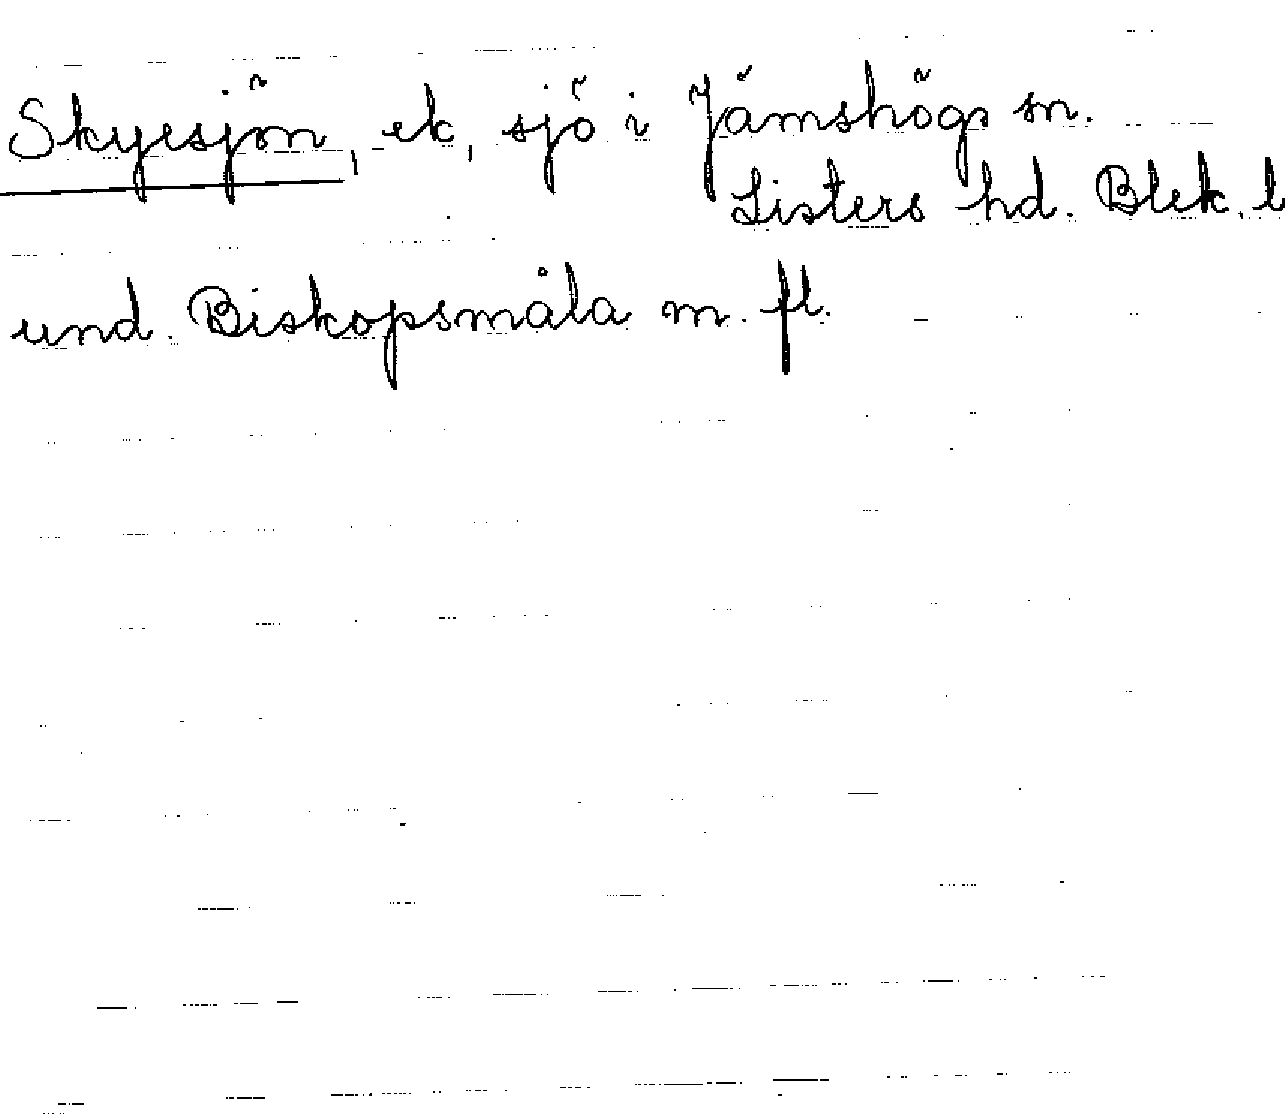 Skyesjön, ek, sjö i Jämshögs sn.
Listers hd. Blek. l
und. Biskopsmåla m. fl.